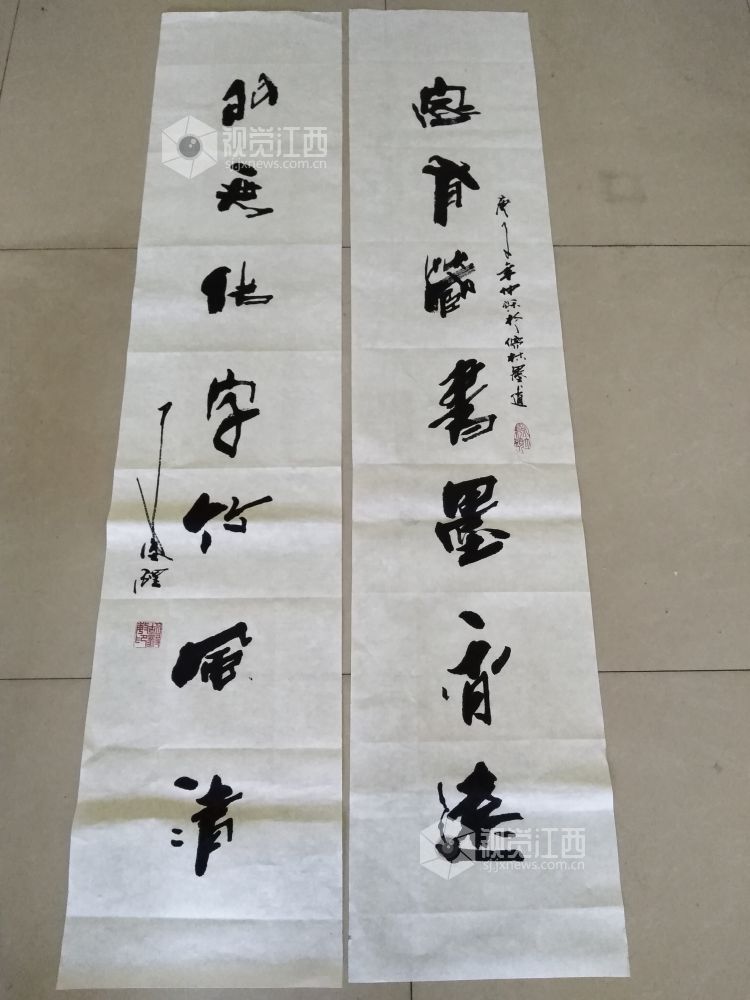 室有藏書墨香遠
庚子年仲秋於
無俗字竹風清
视觉江西
sj.jxnews.com.cn
视觉江西
sj.jxnews.com.cn